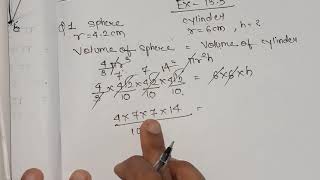 Ex-13.5
Q1 sphere cylinder
r=4.2cm r=6cm, h=?
Volume of sphere = Volume of cylinder
4/3 πr³ = πr²h
4/3 × 42/10 × 42/10 × 42/10 = 6×6×h
7 7 14
4×7×7×14 =
10